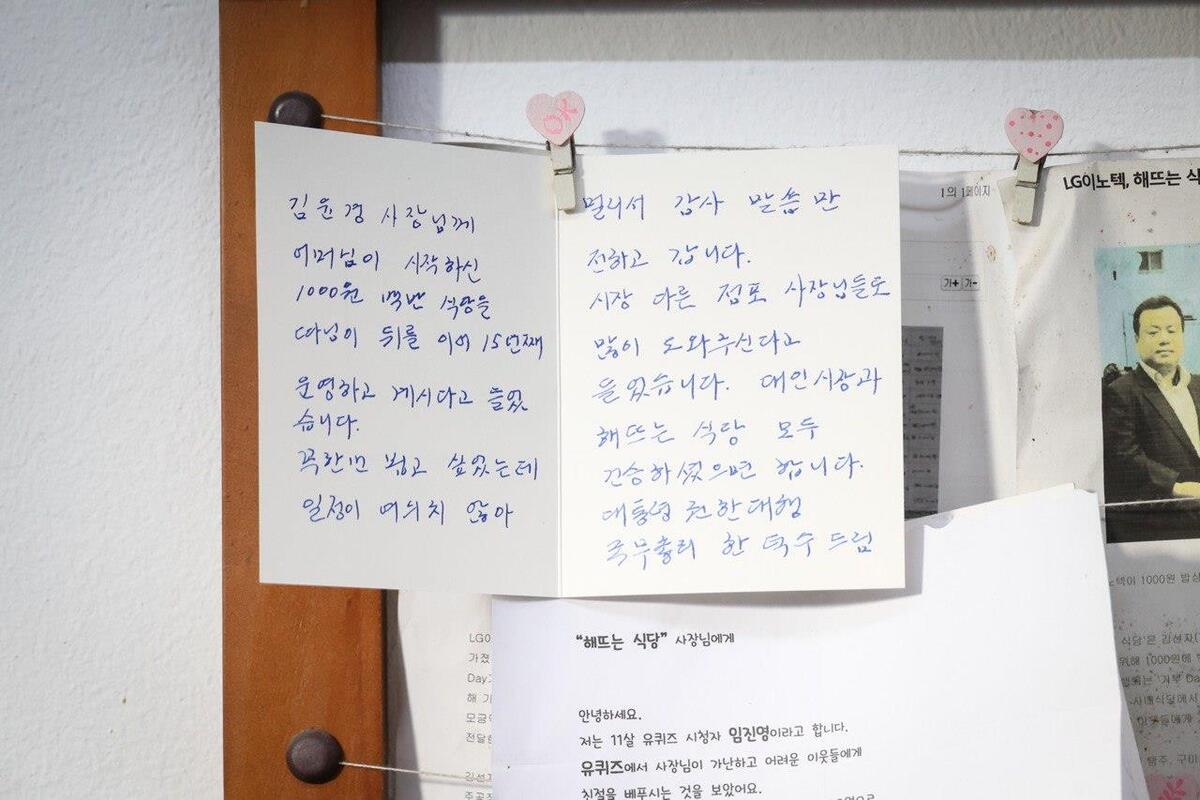 김윤경 사장님께
어머님이 시작하신
1000원 백반 식당을
따님이 뒤를 이어 15년째
운영하고 계시다고 들었
습니다.
꼭한번 뵙고 싶었는데
일정이 여의치 않아
멀리서 감사 말씀만
전하고 갑니다.
시장 다른 점포 사장님들도
많이 도와주신다고
들었습니다. 대인시장과
해뜨는 식당 모두
건승하셨으면 합니다.
대통령 권한대행
국무총리 한덕수 드림
OK
1의 1페이지
가+ 가-
LG이노텍, 해뜨는 식
"해뜨는 식당" 사장님에게
안녕하세요.
저는 11살 유퀴즈 시청자 임진영이라고 합니다.
유퀴즈에서 사장님이 가난하고 어려운 이웃들에게
친절을 베푸시는 것을 보았어요.
LG이
가졌
Day
해 기
모금
전달
김선
노텍이 1000원 밥상
식당'은 김선자(
위해 1000원에